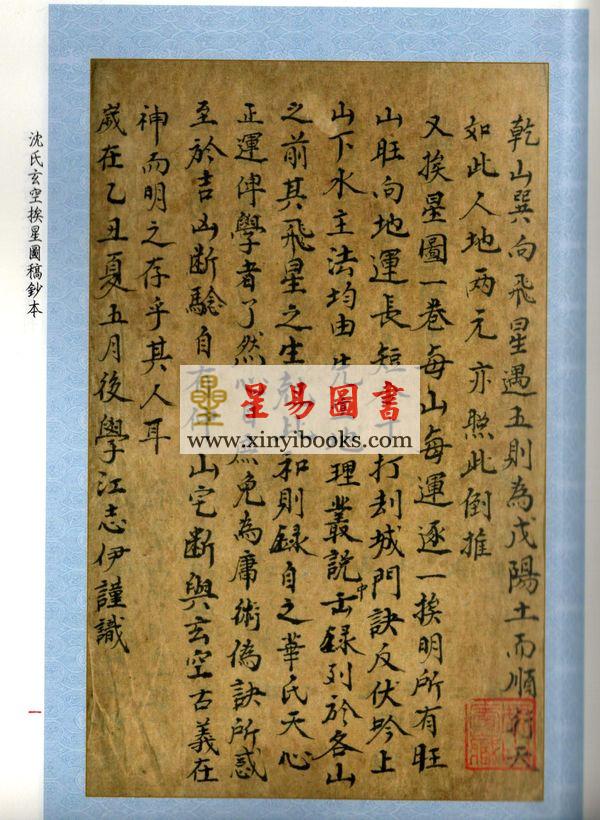 乾山巽向飛星遇五則為戊陽土而順行天
如此人地两元亦照此倒推
又挨星圖一巻每山每運逐一挨明所有旺
山旺向地運長短 打刼城門訣反伏吟上
山下水主法均由先 地理叢說中 錄列於各山
之前其飛星之生尅比和則錄自之華氏天心
正運俾學者了然心目庶免為庸術偽訣所惑
至於吉凶断驗自有 山宅断與玄空古義在
神而明之存乎其人耳
嵗在乙丑夏五月後學江志伊謹識
沈氏玄空挨星圖稿鈔本
一
星易圖書
www.xinyibooks.com